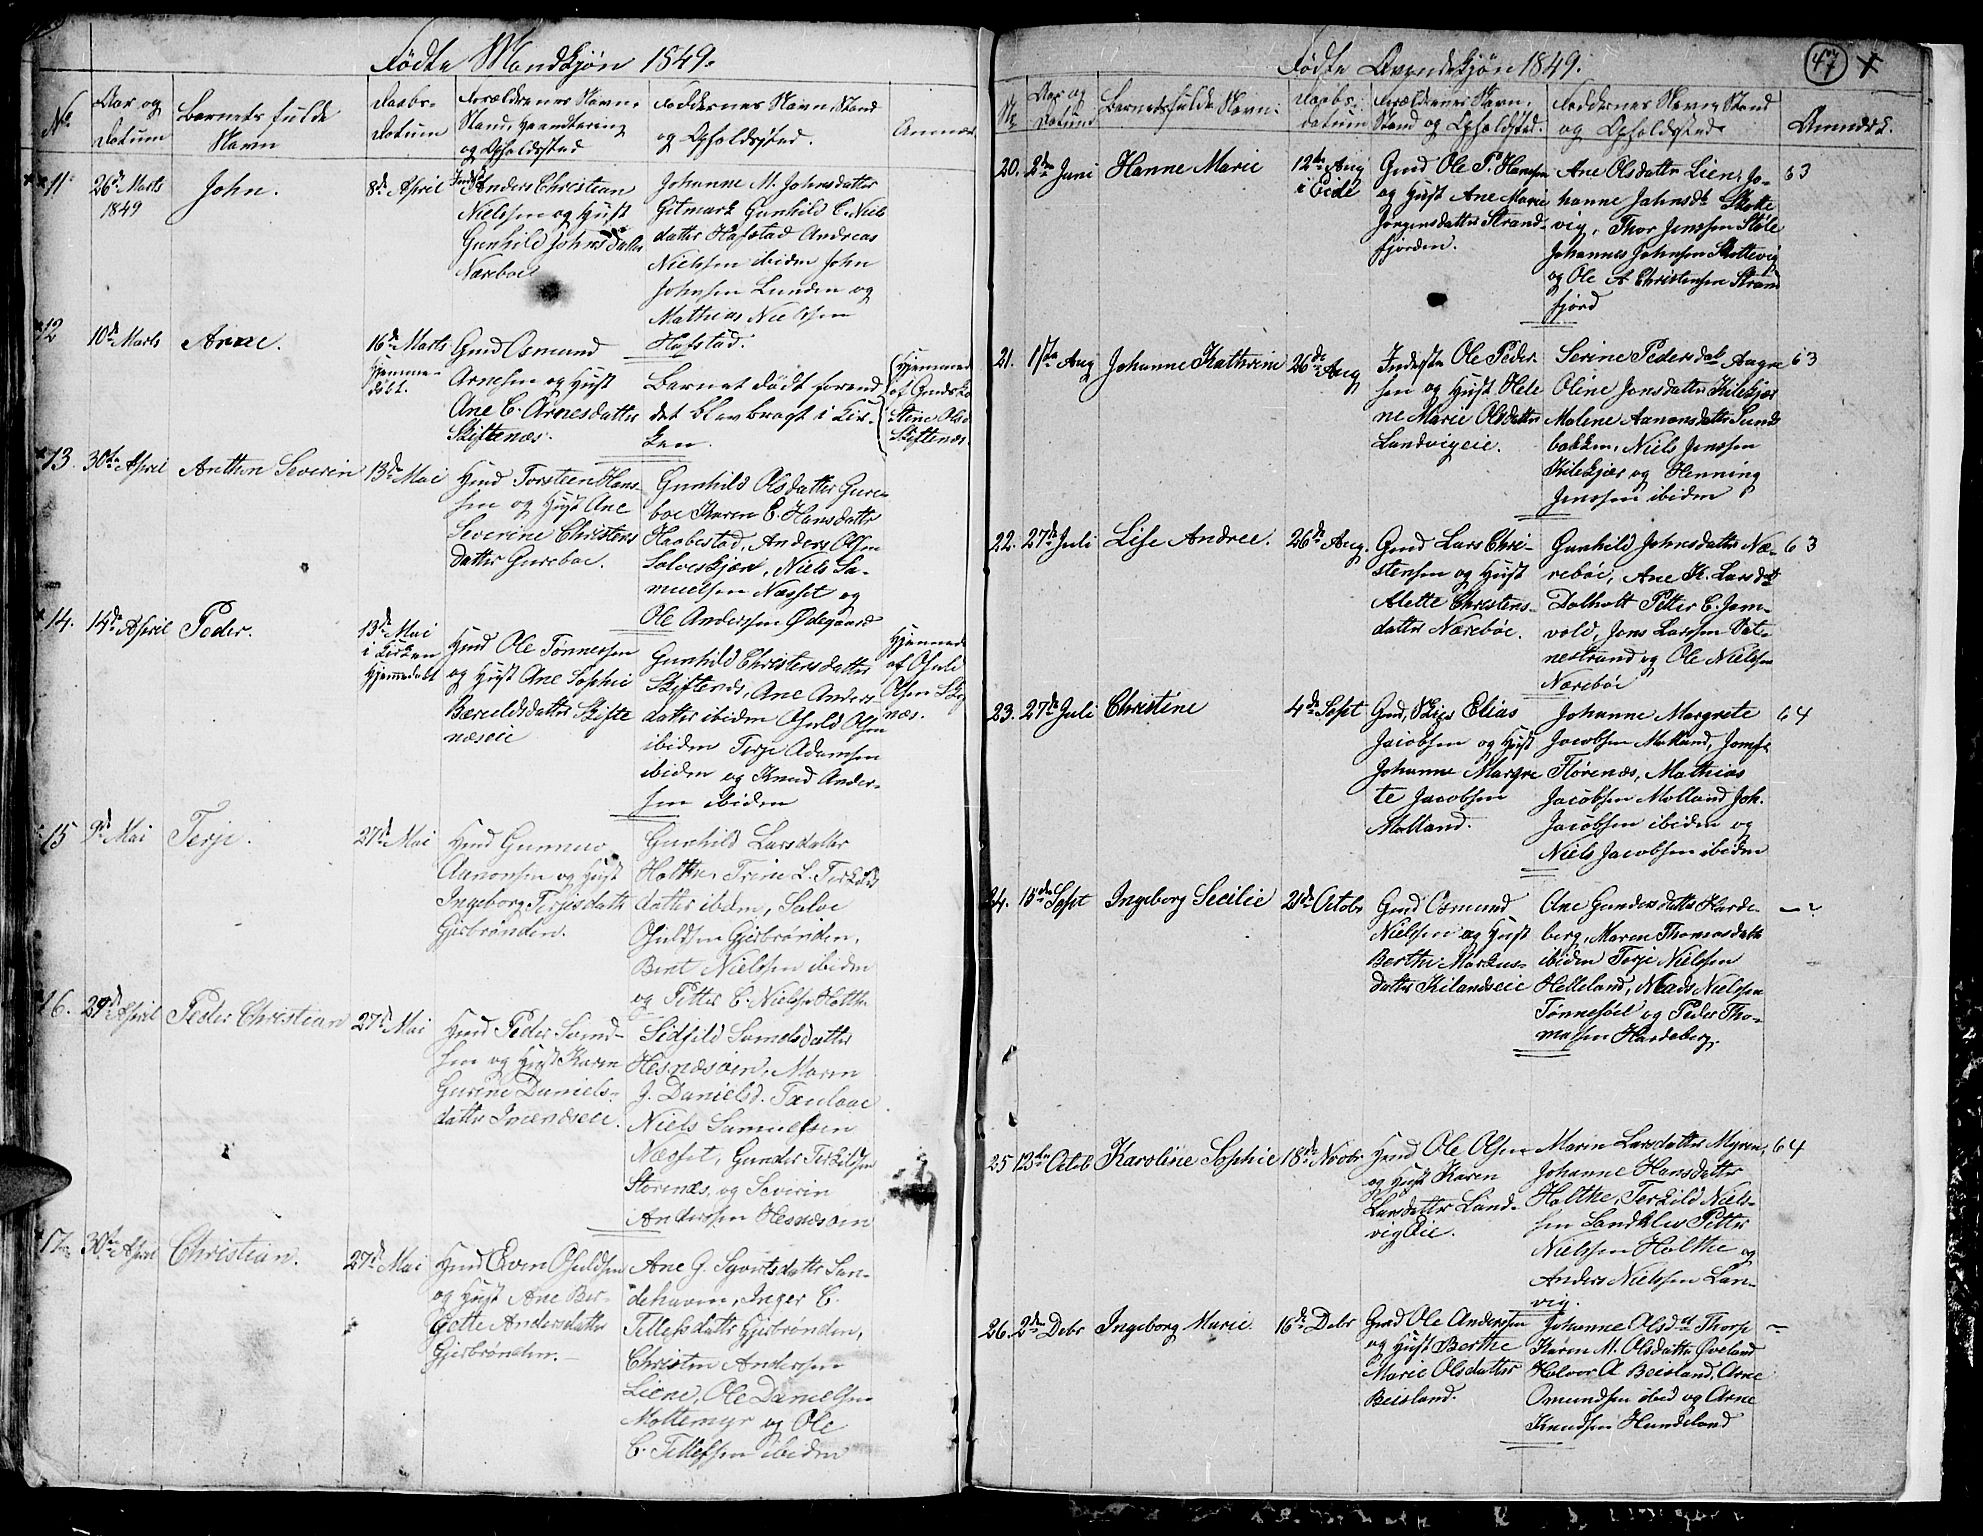 Fødte Mandkjøn 1849.
No.
Aar og
Datum
Barnets fulde
Navn
Daabs-
Datum
Forældrenes Navn,
Stand, Haandtering
og Opholdssted
Faddernes Navn, Stand
og Opholdssted.
Anmær.
11
26de Marts
1849
John.
8de April
Inds. Anders Christian
Nielssen og Hust
Gunhild Johnsdatter
Næreboe
Johanne M. Johnsdatter
Gitmark Gunhild C. Niels
datter Hafstad Andreas
Nielssen ibidem John
Johnsen Lunden og
Mathias Nielssen
Hafstad.
12
10de Marts
Arne.
16de Marts
Hjemme-
døbt.
Gmd Osmund
Arnesen og Hust
Ane C. Arnesdatter
Skiftenæs.
Barnet dødt forend
det blev bragt i Kir-
ken.
Hjemmed
af Gmdsko
Stine Olsd
Skiftenæs
13.
30te April
Anthon Severin
13de Mai
Hmd Torsteen Hans-
sen og Hust Ane
Severine Christens
datter Gureboe.
Gunhild Olsdatter Gure-
boe Karen C. Hansdatter
Haabestad, Anders Olsen
Solveskjær, Niels Sa-
muelsen Næsset og
Ole Anderssen Ødegaard
14.
14de April
Peder.
13de Mai
i Kirken
Hjemmedøbt
Hmd Ole Tønnessen
og Hust Ane Sophie
Bæruldsdatter Skifte
næseie
Gunhild Christensdatter
Skiftenæs, Ane Anders-
datter ibidem Osuld Olsen
ibidem Terje Adamsen
ibidem og Knud Ander-
sen ibidem
Hjemmed
af Osuld
Olsen Skif
næs.
15
9de Mai
Terje.
27de Mai
Hmd Gunnuv
Aanonsen og Hust
Ingeborg Terjesdatter
Gjerbrønden.
Gunhild Larsdatter
Holthe, Trine L. Terkilds
datter ibidem, Salve
Osuldsen Gjerbrønden,
Bent Nielssen ibidem
og Petter C. Nielsen Holthe
16.
29de April
Peder Christian
27de Mai
Hmd Peder Samd-
sen og Hust Karen
Gurine Daniels-
datter Inændseie.
Sidsild Samelsdatter
Hesnæsøen, Maren
J. Danielsd.
Niels Samuelsen
Næsset, Gunder Terkilsen
Storenæs, og Severin
Anderssen Hesnæsøen
17.
30te April
Christian.
27de Mai
Hmd Even Osuldsen
og Hust Ane Ber-
gette Andersdatter
Gjerbrønden.
Ane G. Syvertsdatter San-
dehaven, Inger C.
Tellefsdatter Gjerbrønden,
Christen Anderssen
Liene, Ole Danielsen
Moltemyr og Ole
C. Tellefsen ibidem
Fødte Qvindekjøn 1849.
47
No.
Aar og
Datum
Barnets fulde Navn.
Daabs-
datum
Forældrenes Navn,
Stand og Opholdsted.
Faddernes Navn, Stand
og Opholdsted.
Anmærk.
20.
2den Juni
Hanne Marie
12te Aug
i Eide
Gmd Ole P. Hanssen
og Hust Ane Marie
Jørgensdatter Strand-
fjorden.
Ane Olsdatter Lien, Jo-
hanne Jahnsdt Skotte
vig, Thor Jenssen Støle
Johannes Johnsen Skottevig
og Ole A Christensen Strand
fjord
63
21.
17de Aug
Johanne Kathrine
26de Aug
Inderste Ole Peder-
sen og Hust Hele
ne Marie Olsdatter
Landvigeie.
Serine Pedersdat Augre
Oline Jensdatter Kilekjær
Malene Aanonsdatter Sund
bakken, Niels Jenssen
Kilekjær og Henning
Jenssen ibidem
63
22.
27de Juli
Lise Andree.
26de Aug.
Gmd Lars Chri-
stensen og Hust
Alette Christens-
datter Næreboe.
Gunhild Johnsdatter Næ-
reboe, Ane K. Larsdat
Dalholt Petter C. Jam-
vold, Jens Larssen Vat-
nestrand og Ole Nielssen
Næreboe
63
23.
27de Juli
Christine
4de Sept
Gmd, Elias
Jacobsen og Hust
Johanne Margre
te Jacobsen
Molland.
Johanne Margrete
Jacobsen Molland, Jomfr
Storenæs, Mathias
Jacobsen Molland Joh.
Jacobsen ibidem og
Niels Jacobsen ibidem
64
24.
15de Sept
Ingeborg Secilie
21de Octob
Gmd Osmund
Nielssen og Hust
Berthe Markus-
datter Kilandseie
Ane Gundersdatter Harde-
berg, Maren Thomasdatt
ibidem Terje Nielssen
Helleland, Mads Nielssen
Tønnesøl og Peder Tho-
massen Hardeberg.
25
13de Octob
Karoline Sophie
18de Novbr
Hmd Ole Olsen
og Hust Karen
Larsdatter Land-
vig Eie.
Maren Larsdatter Myren,
Johanne Hansdatter
Holthe, Terkild Niels-
sen Landklev Petter
Nielssen Holthe og
Anders Nielssen Lan-
vig.
64
26.
2de Debr
Ingeborg Marie
16de Debr
Gmd Ole Anderssen
og Hust Berthe
Marie Olsdatter
Beisland.
Johanne Olsdat Thorp
Karen M. Olsdatter Qveland
Halvor A Beisland, Arne
Omundsen ibid og Arne
Knudsen Hundeland